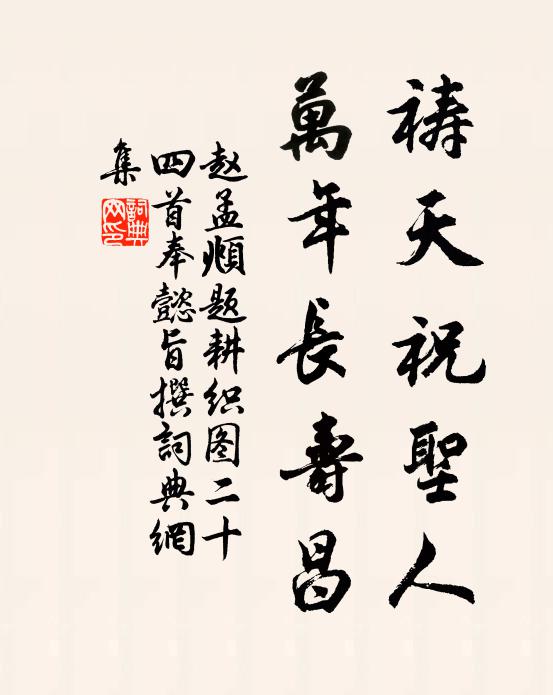 祷天祝聖人
萬年長壽昌
赵孟頫题耕织图二十
四首奉懿旨撰詞典網
集
詞典網印